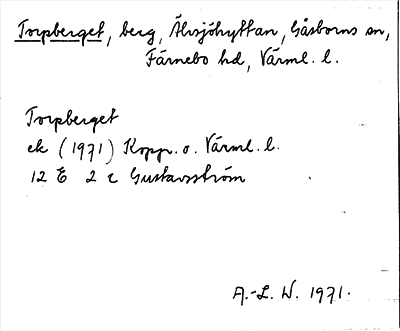 Torpberget, berg, Älvsjöhyttan, Gåsborns sn,
Färnebo hd, Värml. l.
Torpberget
ek (1971) Kopp. o. Värml. l.
12 E 2 c Gustavsström
A.-L. W. 1971.